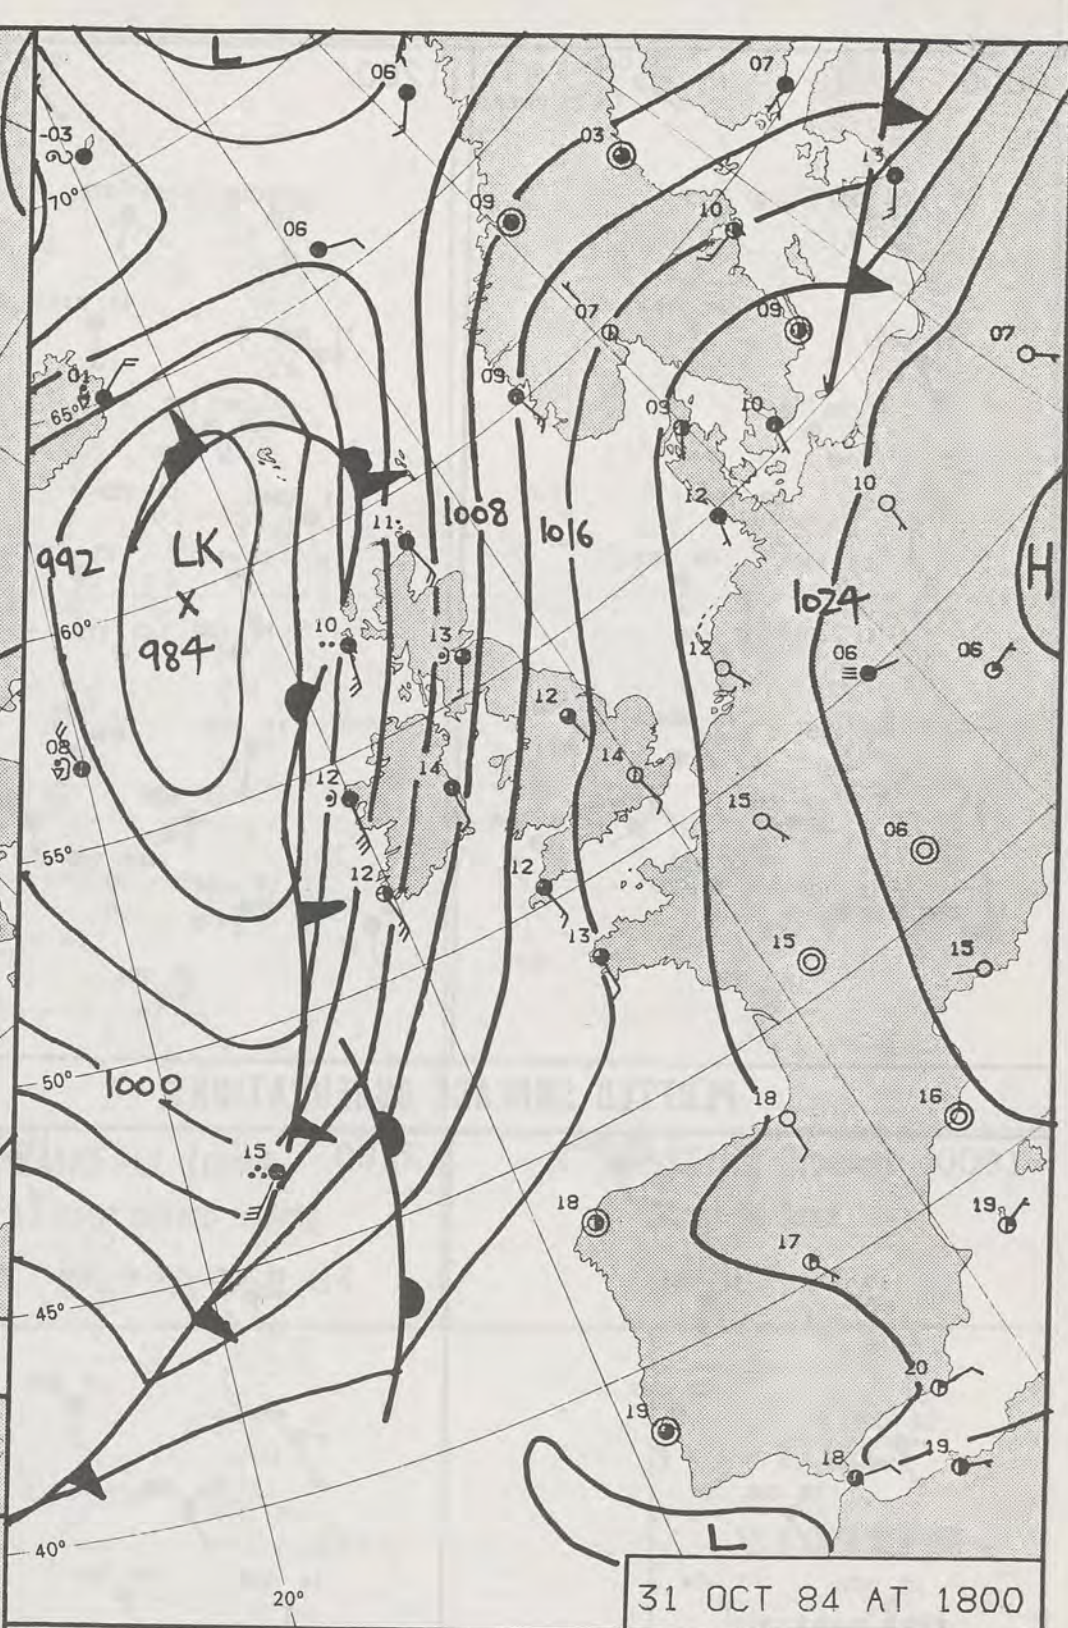 L
06
07
-03
03
13
70°
09
10
06
07
09
07
01
09
65°
09
10
10
12
11
1008
1016
992
LK
H
X
1024
60°
984
10
13
12
06
06
12
08
14
12
14
15
06
55°
12
12
13
15
15
50°
1000
18
16
15
18
19
17
45°
20
19
18
19
L
40°
20°
31 OCT 84 AT 1800